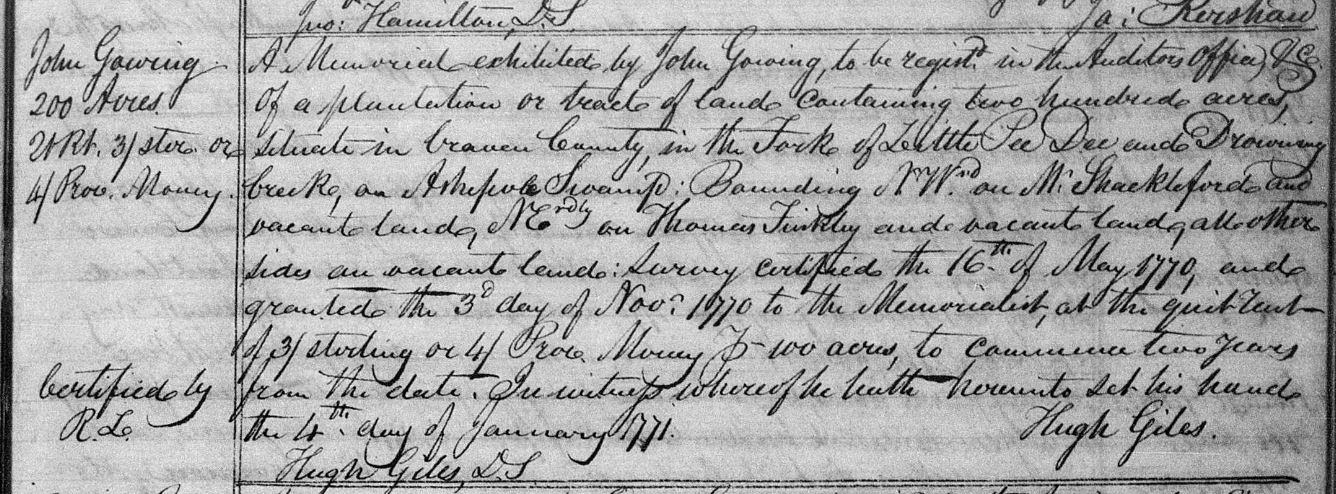 Jno: Hamilton, D.S. Ja: Kershaw
John Gowing
200 Acres.
Qt Rt. 3/ ster. or
4/ Proc. Money.
A Memorial exhibited by John Gowing, to be regist.d in the Auditors Office, &C
Of a plantation or tract of land containing two hundred acres,
situate in Craven County, in the Fork of Little Pee Dee and Drowning
Creek, on Ashepole Swamp: Bounding NWrd on Mr. Shackleford and
vacant land, NErdly on Thomas and vacant land, all other
sides on vacant land: Survey certified the 16th. of May 1770, and
granted the 3d day of Novr. 1770 to the Memorialist, at the quit rent
of 3/ sterling or 4/ Proc. Money P 100 acres, to commence two years
from the date. In witness whereof he hath hereunto set his hand
the 4th. day of January 1771. Hugh Giles.
Hugh Giles, D.S.
Certified by
R. L.